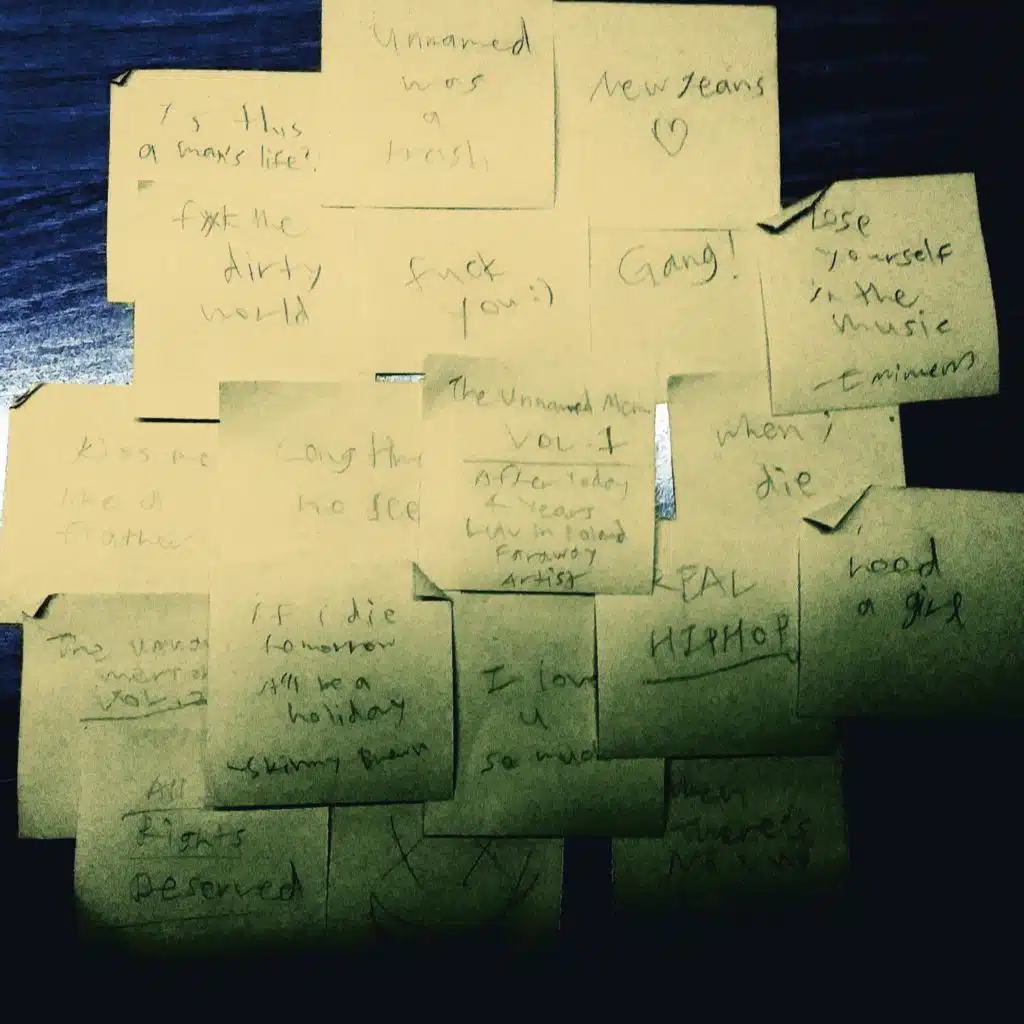 Unnamed
was
a
trash
New Jeans
Is this
a man's life?
f**k the
dirty
world
fuck
you :)
Gang!
Lose
yourself
in the
music
- Eminem
Kiss me
like a
Long time
no see
The Unnamed
VOL. 1
After Today
4 Years
Luv in Poland
Faraway
Artist
when i
die
need
a girl
REAL
HIPHOP
The
VOL. 2
if i die
tomorrow
All be a
holiday
- Skinny Brown
I love
u
so much
All
Rights
Reserved
When
There's